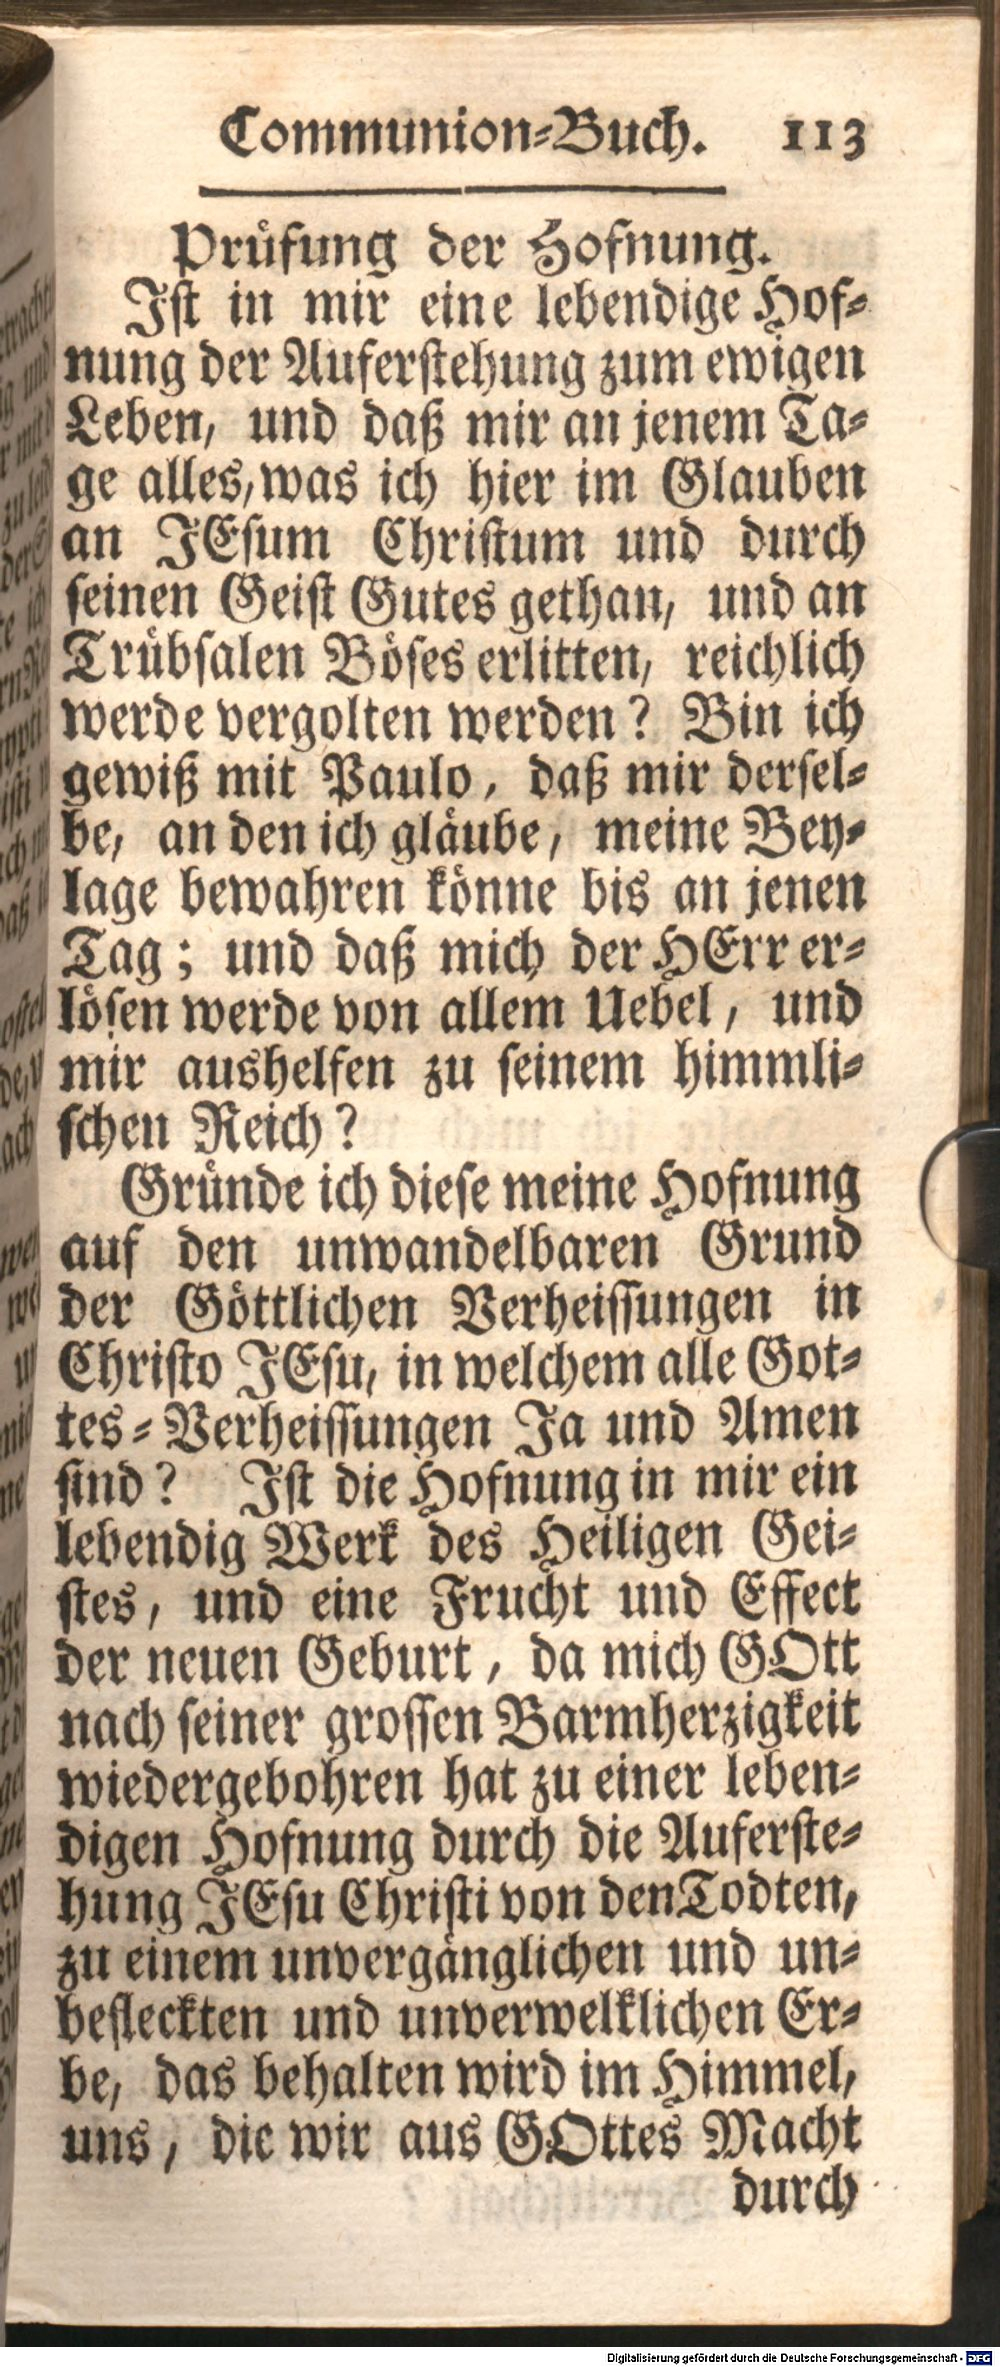 Communion-Buch. 113
Prüfung der Hofnung.
Ist in mir eine lebendige Hof-
nung der Auferstehung zum ewigen
Leben, und daß mir an jenem Ta-
ge alles, was ich hier im Glauben
an JEsum Christum und durch
seinen Geist Gutes gethan, und an
Trübsalen Böses erlitten, reichlich
werde vergolten werden? Bin ich
gewiß mit Paulo, daß mir dersel-
be, an den ich gläube, meine Bey-
lage bewahren könne bis an jenen
Tag; und daß mich der HErr er-
lösen werde von allem Uebel, und
mir aushelfen zu seinem himmli-
schen Reich?
Gründe ich diese meine Hofnung
auf den unwandelbaren Grund
der Göttlichen Verheissungen in
Christo JEsu, in welchem alle Got-
tes-Verheissungen Ja und Amen
sind? Ist die Hofnung in mir ein
lebendig Werk des Heiligen Gei-
stes, und eine Frucht und Effect
der neuen Geburt, da mich GOtt
nach seiner grossen Barmherzigkeit
wiedergebohren hat zu einer leben-
digen Hofnung durch die Auferste-
hung JEsu Christi von den Todten,
zu einem unvergänglichen und un-
befleckten und unverwelklichen Er-
be, das behalten wird im Himmel,
uns, die wir aus GOttes Macht
durch
Digitalisierung gefördert durch die Deutsche Forschungsgemeinschaft - DFG